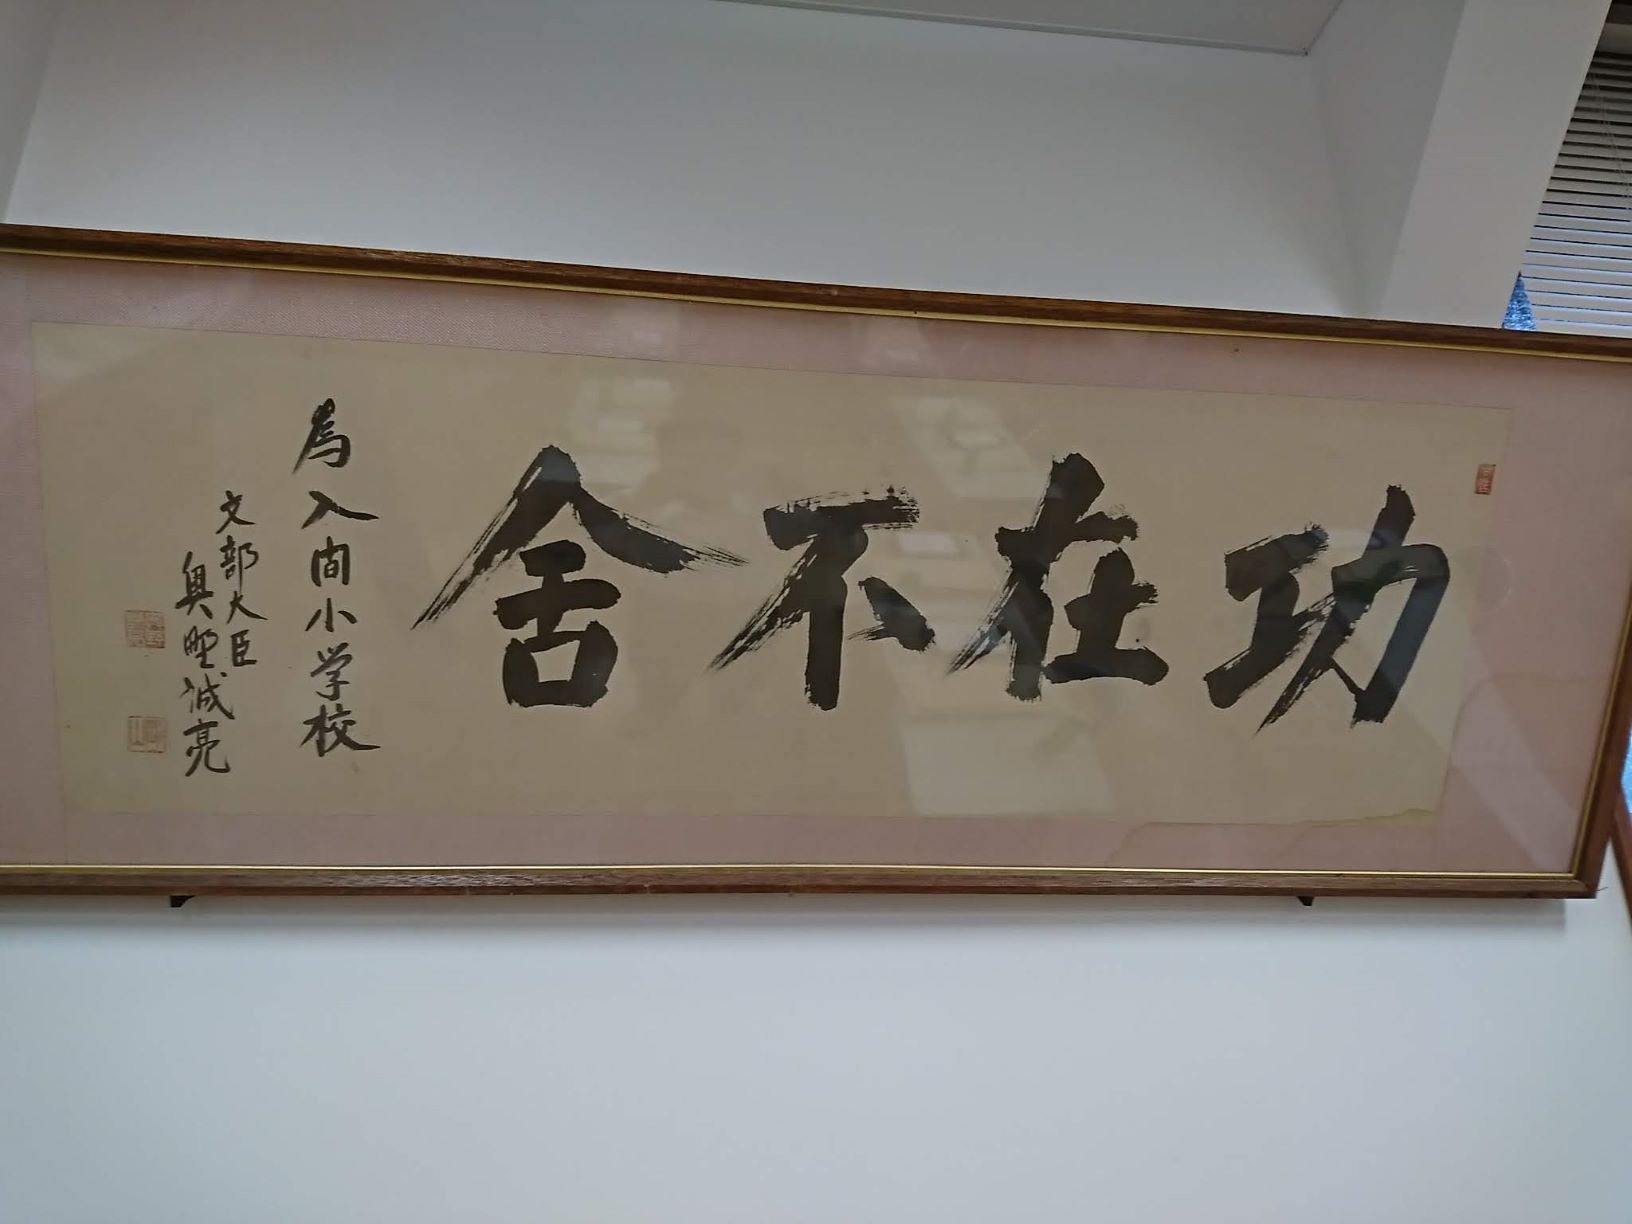 功在不舎
為入間小学校
文部大臣
奥野誠亮